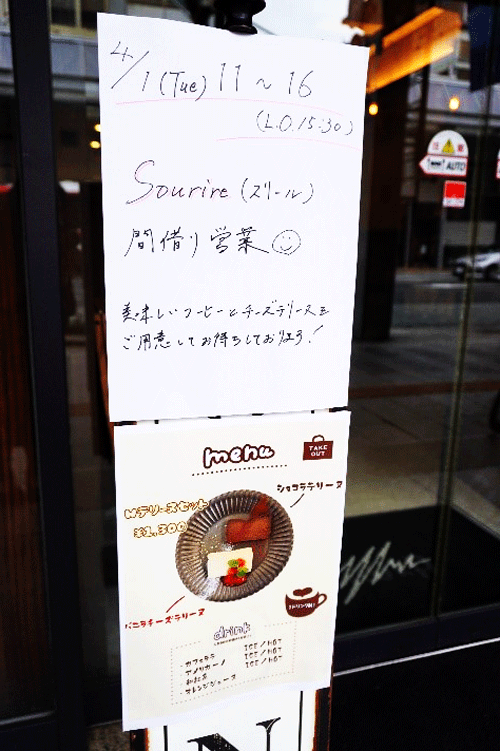 4/1 (Tue) 11〜16
(L.O.15:30)
Sourire (スリール)
間借り営業
美味しいコーヒーとチーズテリーヌを
ご用意してお待ちしております!
menu
TAKE
OUT
ショコラテリーヌ
Wテリーヌセット
¥1,300
バニラチーズテリーヌ
1ドリンク付
drink
・カフェラテ ICE / HOT
・アメリカーノ ICE / HOT
・和紅茶 ICE / HOT
・オレンジジュース
N
注意
AUTO